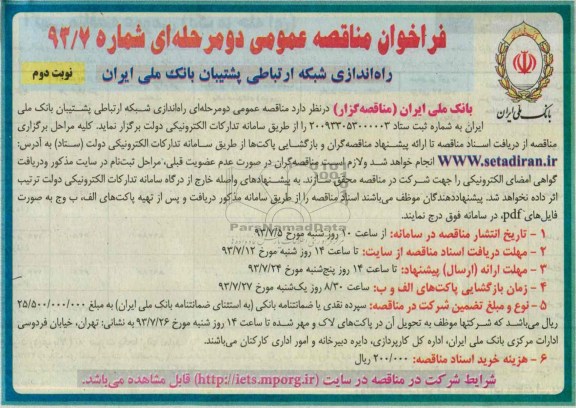 فراخوان مناقصه عمومی دومرحله‌ای شماره ۹۳/۷
راه‌اندازی شبکه ارتباطی پشتیبان بانک ملی ایران
نوبت دوم
بانک ملی ایران
بانک ملی ایران (مناقصه‌گزار) درنظر دارد مناقصه عمومی دومرحله‌ای راه‌اندازی شبکه ارتباطی پشتیبان بانک ملی
ایران به شماره ثبت ستاد ۲۰۰۹۳۳۰۵۳۰۰۰۰۰۳ را از طریق سامانه تدارکات الکترونیکی دولت برگزار نماید. کلیه مراحل برگزاری
مناقصه از دریافت اسناد مناقصه تا ارائه پیشنهاد مناقصه‌گران و بازگشایی پاکت‌ها از طریق سامانه تدارکات الکترونیکی دولت (ستاد) به آدرس:
www.setadiran.ir انجام خواهد شد و لازم است مناقصه‌گران در صورت عدم عضویت قبلی، مراحل ثبت‌نام در سایت مذکور و دریافت
گواهی امضای الکترونیکی را جهت شرکت در مناقصه محقق سازند. به پیشنهادهای واصله خارج از درگاه سامانه تدارکات الکترونیکی دولت ترتیب
اثر داده نخواهد شد. پیشنهاددهندگان موظف می‌باشند اسناد مناقصه را از طریق سامانه مذکور دریافت و پس از تهیه پاکت‌های الف، ب وج به صورت
فایل‌های pdf، در سامانه فوق درج نمایند.
۱ - تاریخ انتشار مناقصه در سامانه: از ساعت ۱۰ روز شنبه مورخ ۹۳/۷/۵
۲ - مهلت دریافت اسناد مناقصه از سایت: تا ساعت ۱۴ روز شنبه مورخ ۹۳/۷/۱۲
۳ - مهلت ارائه (ارسال) پیشنهاد: تا ساعت ۱۴ روز پنج‌شنبه مورخ ۹۳/۷/۲۴
۴ - زمان بازگشایی پاکت‌های الف و ب: ساعت ۸/۳۰ روز یک‌شنبه مورخ ۹۳/۷/۲۷
۵ - نوع و مبلغ تضمین شرکت در مناقصه: سپرده نقدی یا ضمانتنامه بانکی (به استثنای ضمانتنامه بانک ملی ایران) به مبلغ ۲۵/۵۰۰/۰۰۰/۰۰۰
ریال می‌باشد که شرکتها موظف به تحویل آن در پاکت‌های لاک و مهر شده تا ساعت ۱۴ روز شنبه مورخ ۹۳/۷/۲۶ به نشانی: تهران، خیابان فردوسی
ادارات مرکزی بانک ملی ایران، اداره کل کارپردازی، دایره دبیرخانه و امور اداری کارکنان می‌باشند.
۶ - هزینه خرید اسناد مناقصه: ۲۰۰/۰۰۰ ریال
شرایط شرکت در مناقصه در سایت (http://iets.mporg.ir) قابل مشاهده می‌باشد.
ParsNamadData